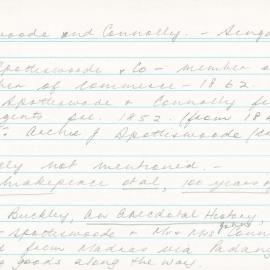 woode and Connolly. - Singa
Spottiswoode & Co - member o
ber of Commerce - 1862.
Spottiswoode & Connolly fi
gents pre. 1852. (from 18
Archie J Spottiswoode
lly not mentioned. -
akepeace et al, 100 years o
Buckley, An Anecdotal History,
Spottiswoode & Mr & Mrs Conn
d from Madras via Padang
g goods along the way.